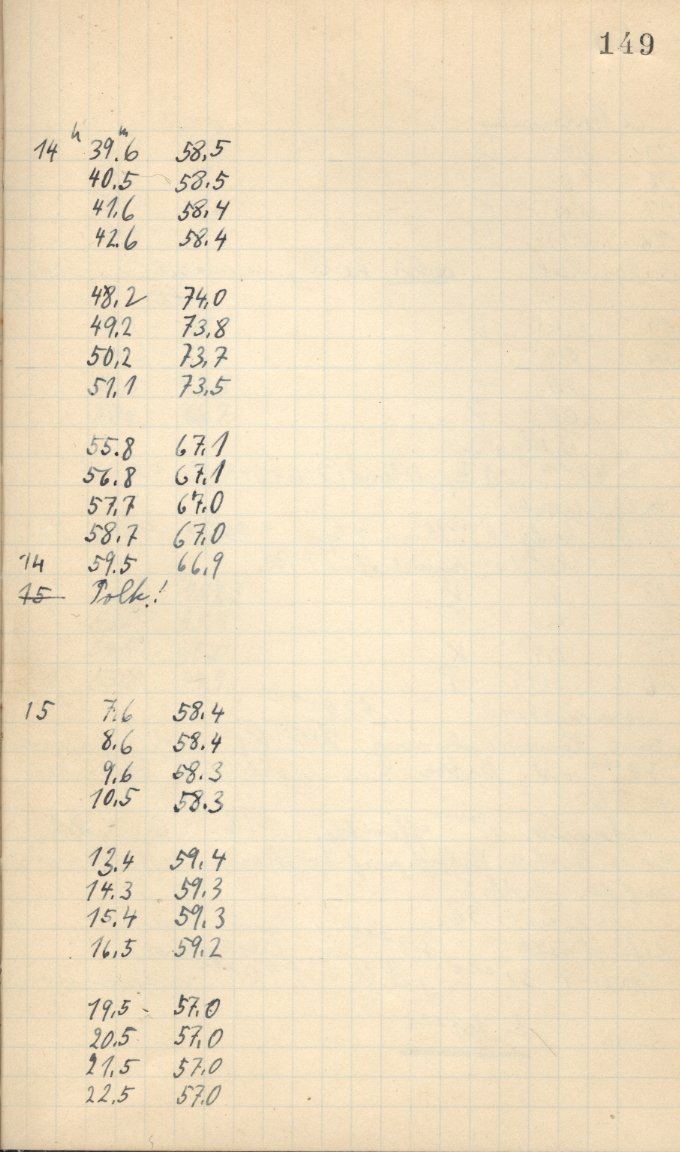 149
14 h 39.6 m 58,5
40.5 58.5
41.6 58,4
42.6 58.4
48,2 74,0
49,2 73,8
50,2 73,7
51,1 73,5
55.8 67.1
56.8 67.1
57,7 67.0
58.7 67,0
14 59.5 66,9
15 Polh.!
15 7.6 58.4
8.6 58.4
9.6 58.3
10.5 58.3
13.4 59.4
14.3 59.3
15.4 59,3
16,5 59.2
19,5 57,0
20,5 57,0
21,5 57,0
22,5 57,0